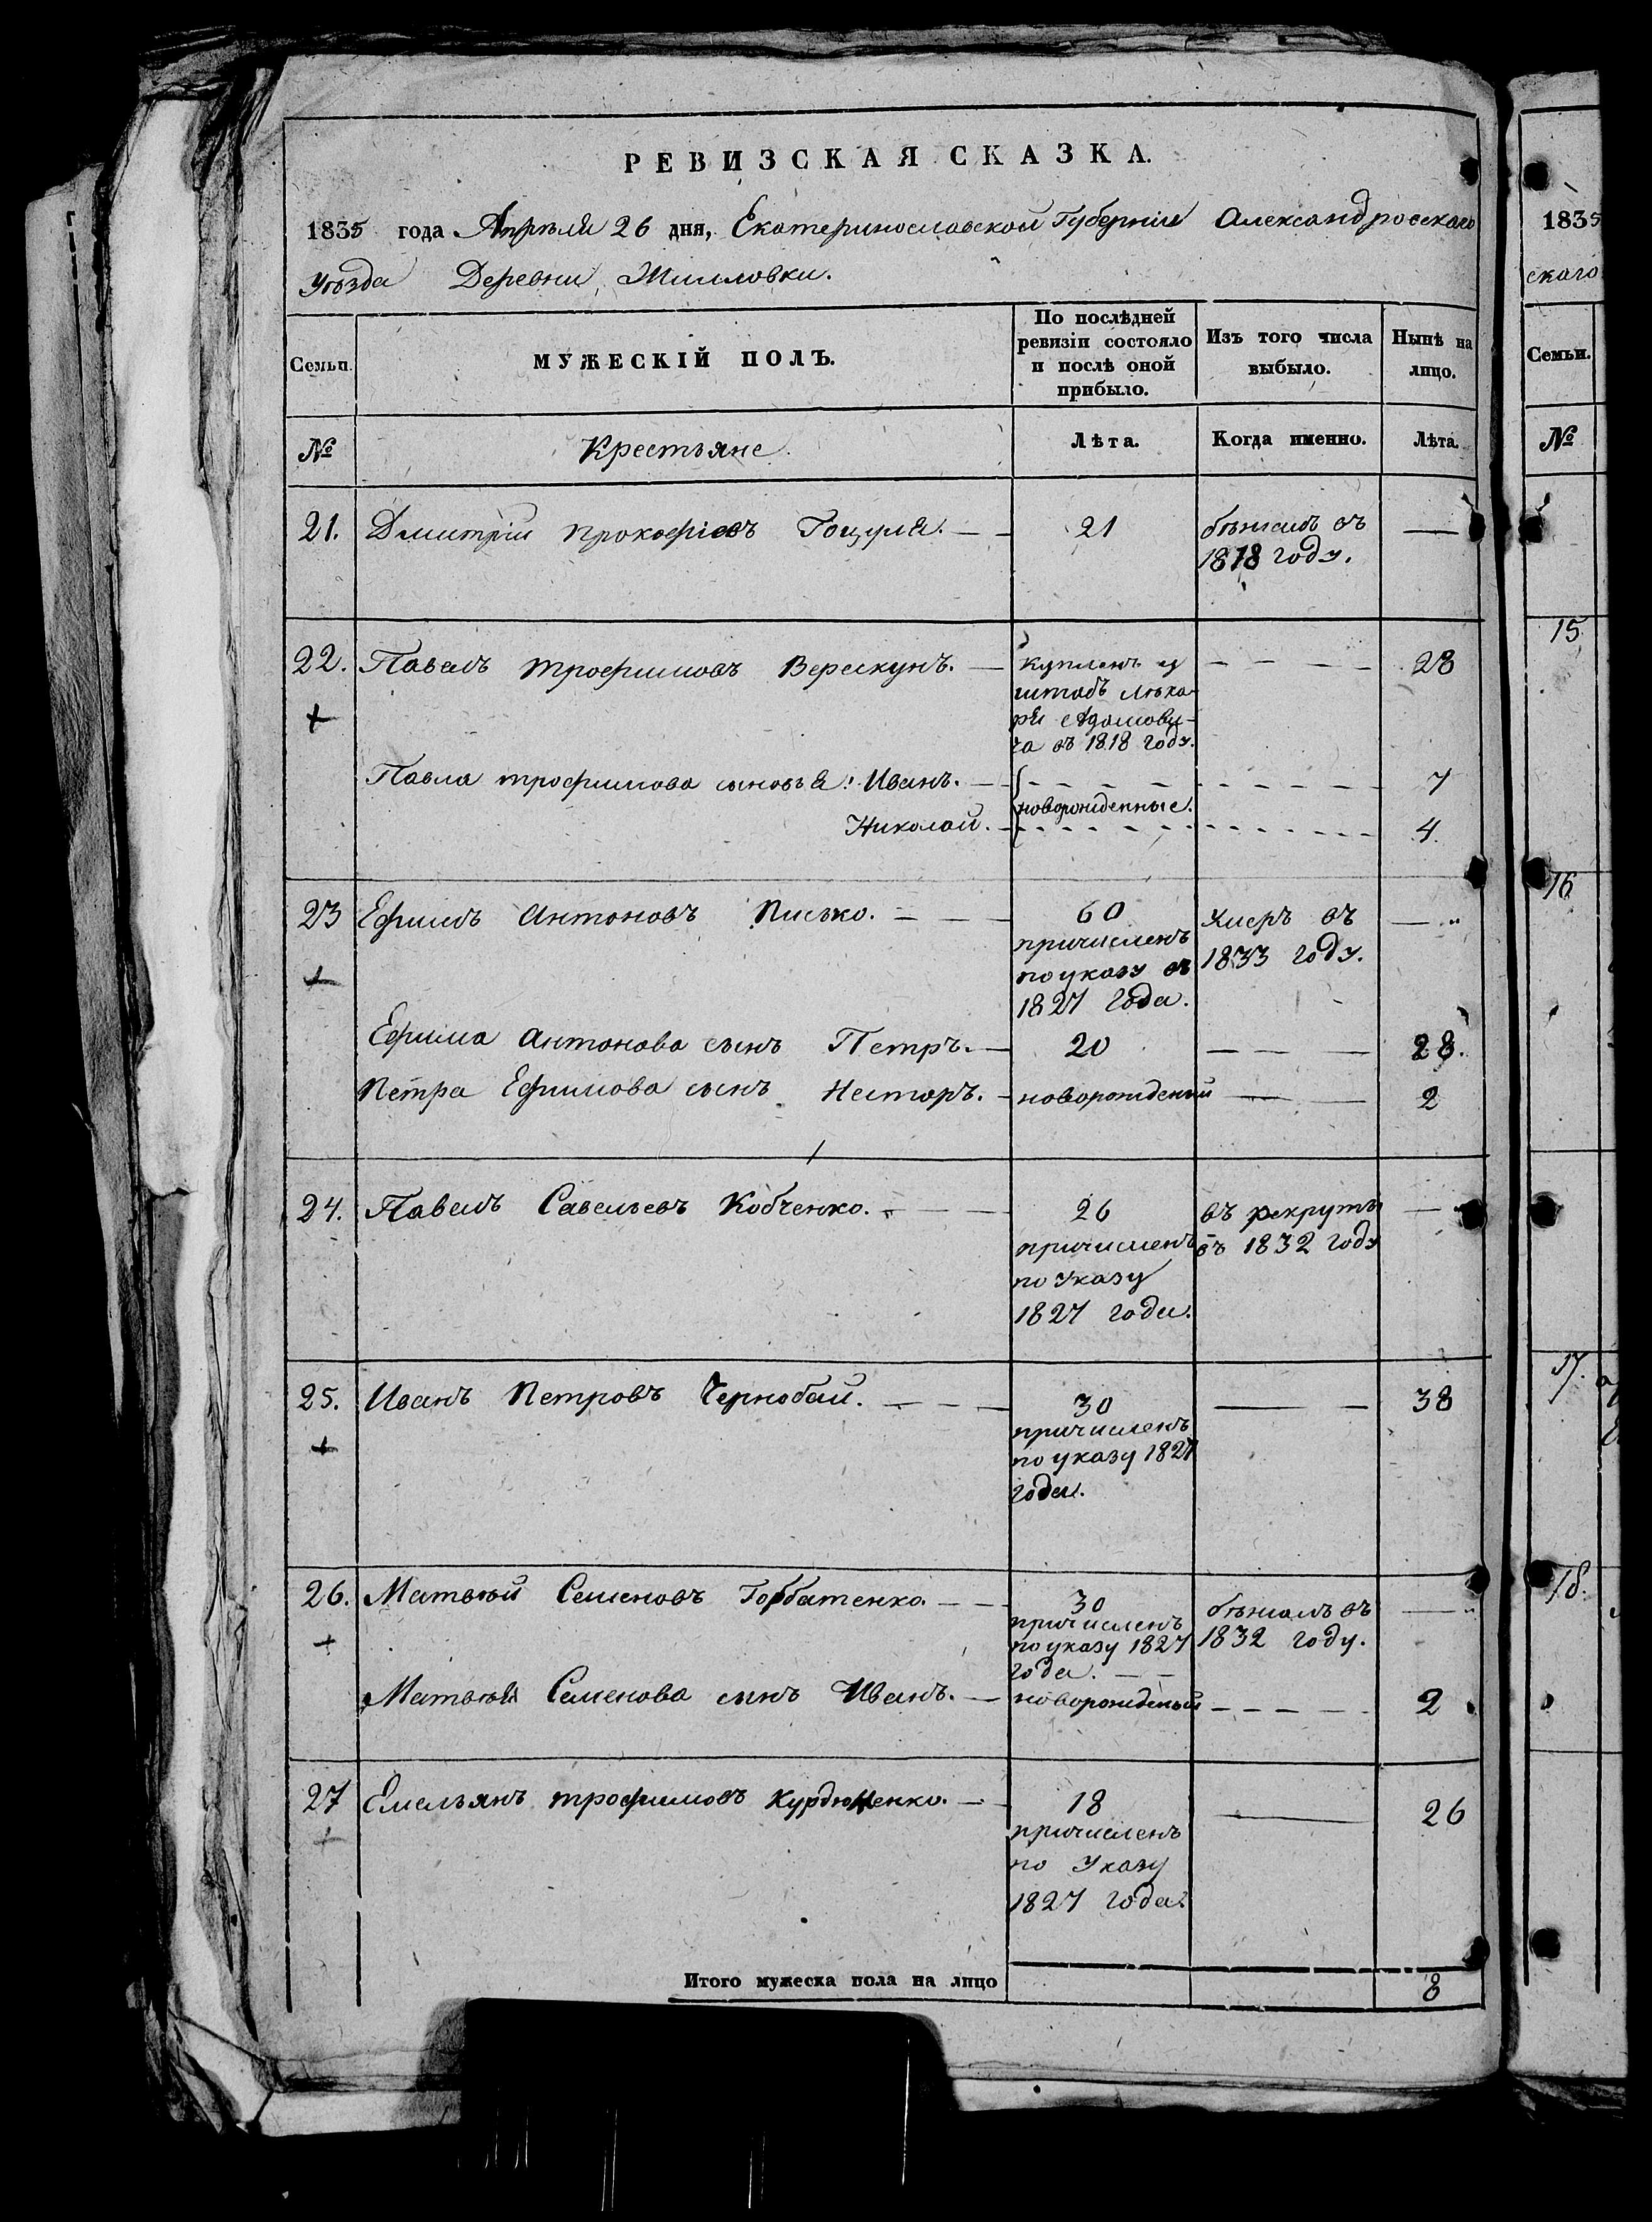 РЕВИЗСКАЯ СКАЗКА.
1835 года Апрѣля 26 дня, Екатеринославской Губерніи Александровскаго
уѣзда Деревни
Семьи.
МУЖЕСКІЙ ПОЛЪ.
По послѣдней
ревизіи состояло
и послѣ оной
прибыло.
Изъ того числа
выбыло.
Нынѣ на
лицо.
№
Крестьяне.
Лѣта.
Когда именно.
Лѣта.
21. Дмитрій Прокофіевъ Гоцуля. — — 21 бѣжалъ въ —
1818 году.
22. Павелъ трофимовъ Верескунъ. — купленъ у — — — — 28
+ штабъ лѣка-
ря Адамови-
ча въ 1818 году.
Павла трофимова сыновья: Иванъ. — 7
новорожденные.
Николай. — 4.
23 Ефимъ Антоновъ Писько. — — — 60 умеръ въ —
+ причисленъ 1833 году.
по указу въ
1827 года.
Ефима Антонова сынъ Петръ. — 20 — — — 28.
Петра Ефимова сынъ Несторъ. — новорожденый — — 2
24. Павелъ Савельевъ Кобченко. — — — 26 въ рекруты —
причисленъ въ 1832 году
по Указу
1827 года.
25. Иванъ Петровъ Чернобай. — — — 30 — — 38
+ причисленъ
по указу 1827
года.
26. Матвѣй Семеновъ Горбатенко. — — 30 бѣжалъ въ —
+ причисленъ 1832 году.
по указу 1827
года. — —
Матвѣя Семенова сынъ Иванъ. — новорожденый — — — — 2
27 Емельянъ трофимовъ — — 18 — 26
+ причисленъ
по Указу
1827 года.
Итого мужеска пола на лицо 8
1835
скаго
Семьи.
№
15
16
17.
18.